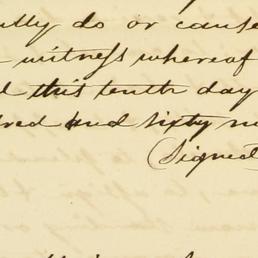 ully do or cause
witness whereof
d this tenth day
dred and sixty n
(Signed